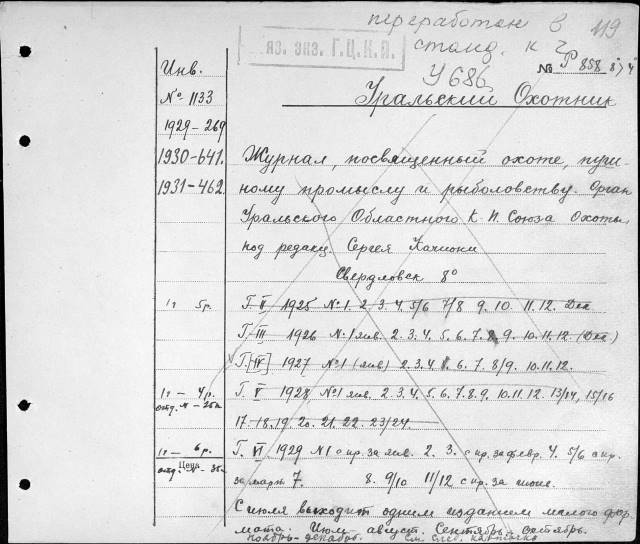 переработан в
119
яз. экз. Г.Ц.К.П.
станд. к 2
№ Р 858
У 686
Инв.
№ 1133
1929-269
1930-641.
1931-462.
Уральский Охотник
Журнал, посвященный охоте, пуш-
ному промыслу и рыболовству. Орган
Уральского Областного К. П. Союза Охотн.
под редакц. Сергея
Свердловск 8°
1г 5р.
Г. II 1925 №1. 2. 3. 4. 5/6 7/8 9. 10. 11. 12. Дек
Г. III 1926 №1 янв. 2. 3. 4. 5. 6. 7. 8 9. 10. 11. 12 (Дек)
Г. [IV] 1927 №1 (янв) 2. 3. 4. 6. 7. 8/9. 10. 11. 12.
1г - 4р.
отд. № - 25к
Г. V 1928 №1 янв. 2. 3. 4. 5. 6. 7. 8. 9. 10. 11. 12. 13/14, 15/16
17. 18. 19. 20. 21. 22. 23/24.
1г - 6р.
Цена
отд. № - 35к
Г. VI. 1929 №1 с пр. за янв. 2. 3. с пр. за февр. 4. 5/6 с пр.
за март 7. 8. 9/10 11/12 с пр. за июнь.
С июля выходит одним изданием малого фор
мата. Июль - август. Сентябрь - октябрь.
ноябрь - декабрь. см. след. карточка